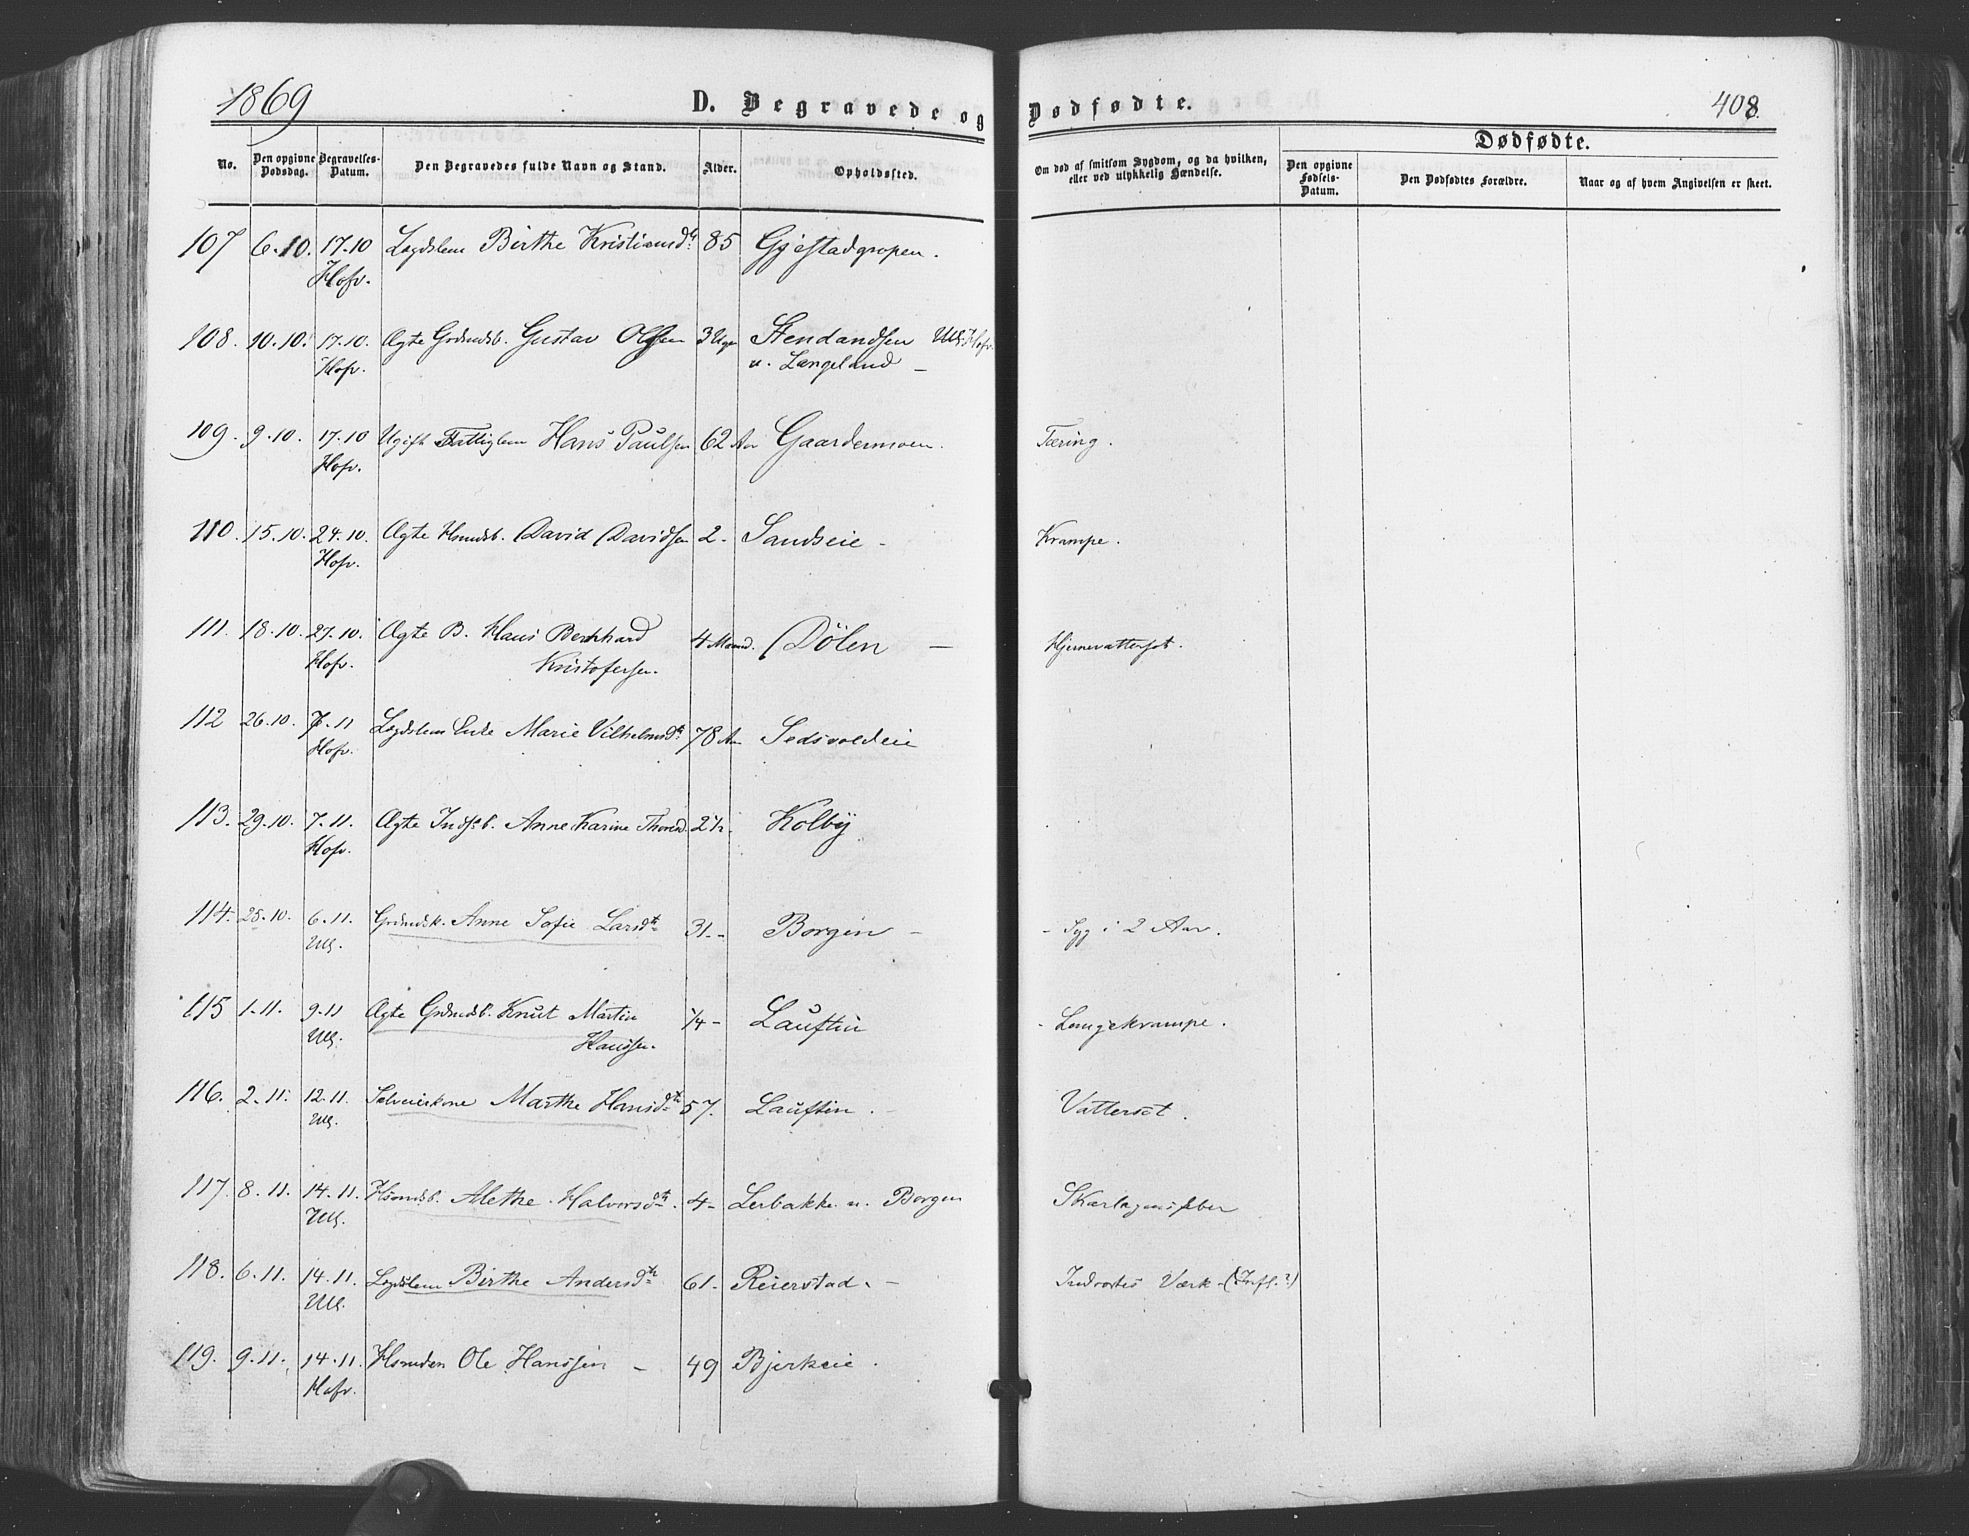 1869 D. Begravede og Dødfødte. 408.
No. Den opgivne Dødsdag. Begravelses-Datum. Den Begravedes fulde Navn og Stand. Alder. Opholdssted. Om død af smitsom Sygdom, og da hvilken, eller ved ulykkelig Hændelse. Dødfødte. Den opgivne Fødsels-Datum. Den Dødfødtes Forældre. Naar og af hvem Angivelsen er skeet.
107 6.10. 17.10 Lægdslem Birthe Kristiansdtr 85 Gjestadgropen.
Hofv.
108. 10.10. 17.10. Ægte Grdmdsb. Gustav Olsen 3 Uger Stendandsen Ull. Hofv.
Hofv. u. Langeland -
109. 9.10. 17.10 Ugift Fattiglem Hans Paulsen 62 Aar Gaardermoen. Tæring.
Hofv.
110. 15.10. 24.10. Ægte Hsmdsb. David Davidsen 2 - Sandseie - Krampe.
Hofv.
111. 18.10. 27.10. Ægte B. Hans Bernhard 4 Maaned. Dölen - Hjernevattersot.
Hofv. Kristofersen.
112 26.10. 7.11 Lægdslem Enke Marie Vilhelmsdtr 78 Aar Sedsvoldeie
Hofv.
113. 29.10. 7.11. Ægte Indsb. Anne Karine Thorsd. 2½. Kolby.
Hofv.
114. 25.10. 6.11. Grdmdsk. Anne Sofie Larsdtr 31.- Borgen - - Syg i 2 Aar.
Ull.
115 1.11. 9.11 Ægte Grdmdsb. Knut Martin ¼ - Lauftin - Lungekrampe.
Ull. Hansen.
116. 2.11. 12.11. Selveierkone Marthe Hansdtr 57. Lauftin. - Vattersot.
Ull.
117. 8.11. 14.11. Hsmdsb. Alethe Halvorsdtr. 4 - Lerbakke u. Borgen Skarlagensfeber
Ull.
118. 6.11. 14.11. Lægdslem Birthe Andersdtr 61 - Reierstad. - Indvortes Værk - (Infl.?)
Ull.
119. 9.11. 14.11. Hsmden Ole Hanssen - 49 Bjerkeie.
Hofv.